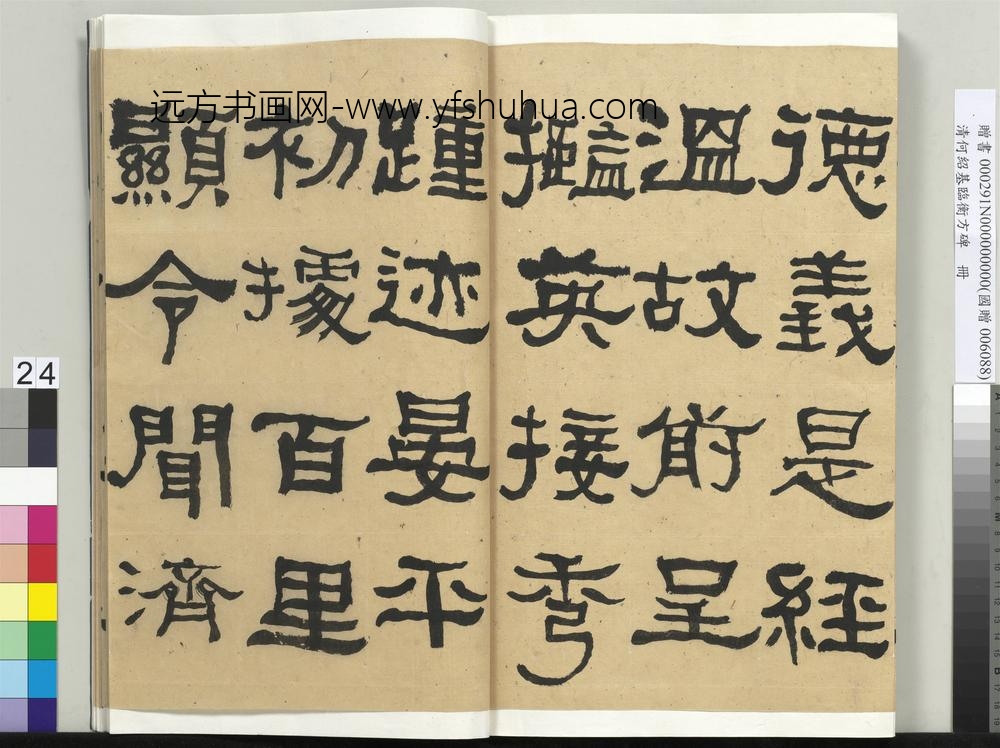 远方书画网-www.yfshuhua.com
德義是經
溫故前呈
㩜英接秀
踵迹晏平
初據百里
顯令聞濟
贈書 000291N000000000(國贈 006088)
清何绍基臨衡方碑 冊
24